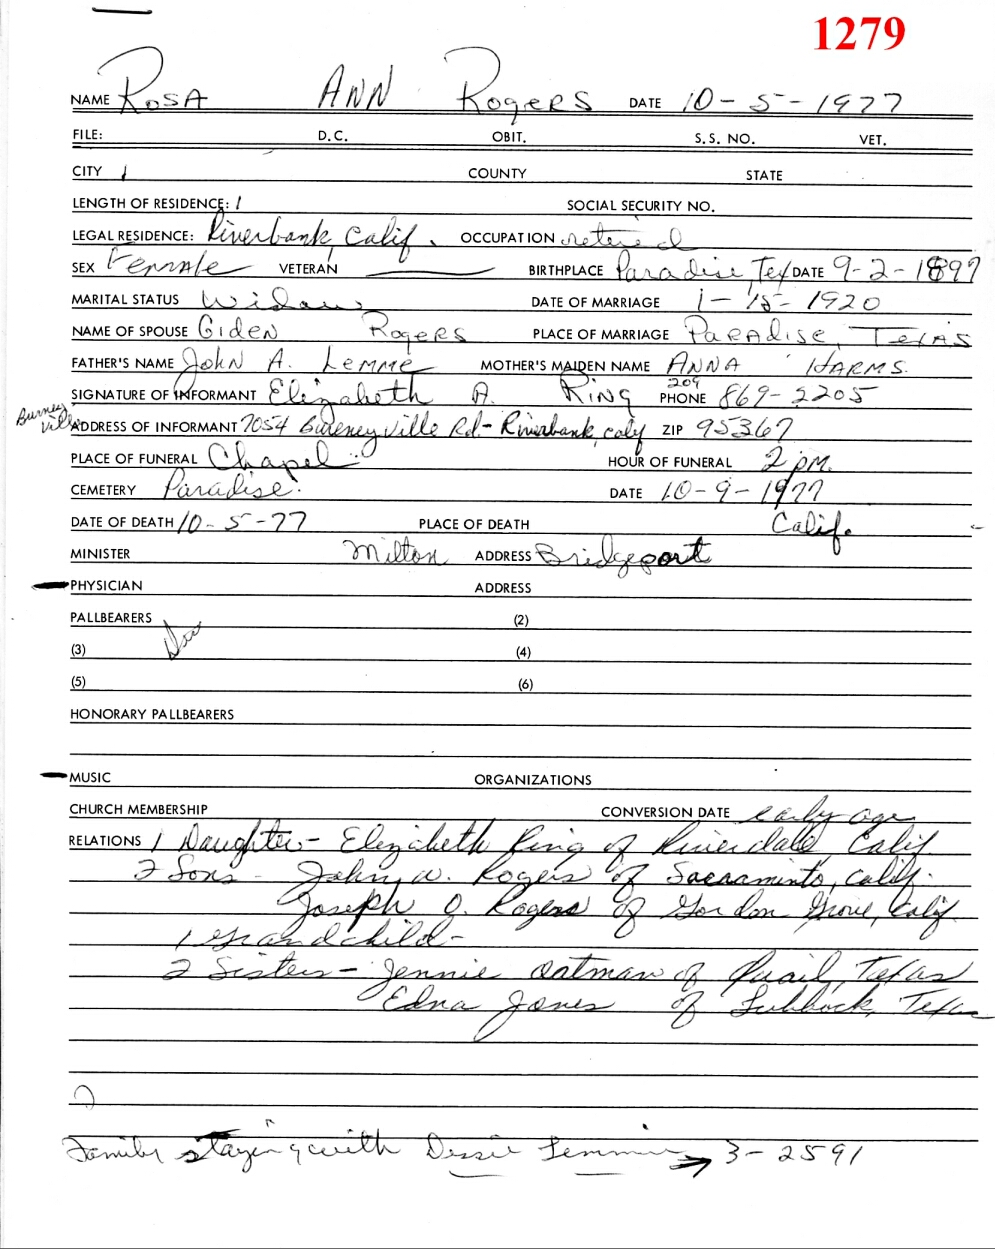 1279
NAME Rosa Ann Rogers DATE 10-5-1977
FILE: D.C. OBIT. S.S. NO. VET.
CITY COUNTY STATE
LENGTH OF RESIDENCE: SOCIAL SECURITY NO.
LEGAL RESIDENCE: Riverbank, Calif. OCCUPATION retired
SEX Female VETERAN BIRTHPLACE Paradise, Tex DATE 9-2-1897
MARITAL STATUS Widow DATE OF MARRIAGE 1-15-1920
NAME OF SPOUSE Giden Rogers PLACE OF MARRIAGE Paradise, Texas
FATHER'S NAME John A. Lemme MOTHER'S MAIDEN NAME Anna Harms
SIGNATURE OF INFORMANT Elizabeth A. Ring PHONE 209 869-2205
Burney ville
ADDRESS OF INFORMANT 7054 Burneyville Rd- Riverbank, calif ZIP 95367
PLACE OF FUNERAL Chapel HOUR OF FUNERAL 2 pm.
CEMETERY Paradise DATE 10-9-1977
DATE OF DEATH 10-5-77 PLACE OF DEATH Calif.
MINISTER Milton ADDRESS Bridgeport
PHYSICIAN ADDRESS
PALLBEARERS (2)
(3) (4)
(5) (6)
HONORARY PALLBEARERS
MUSIC ORGANIZATIONS
CHURCH MEMBERSHIP CONVERSION DATE early age
RELATIONS 1 Daughter- Elizabeth Ring of Riverdale, Calif.
2 Sons - John W. Rogers of Sacramento, Calif.
Joseph O. Rogers of Gordon Grove, Calif.
1 Grandchild-
2 Sisters- Jennie Oatman of Quail, Texas
Edna Jones of Lubbock, Texas
Family staying with Dessie Lemming 3-2591